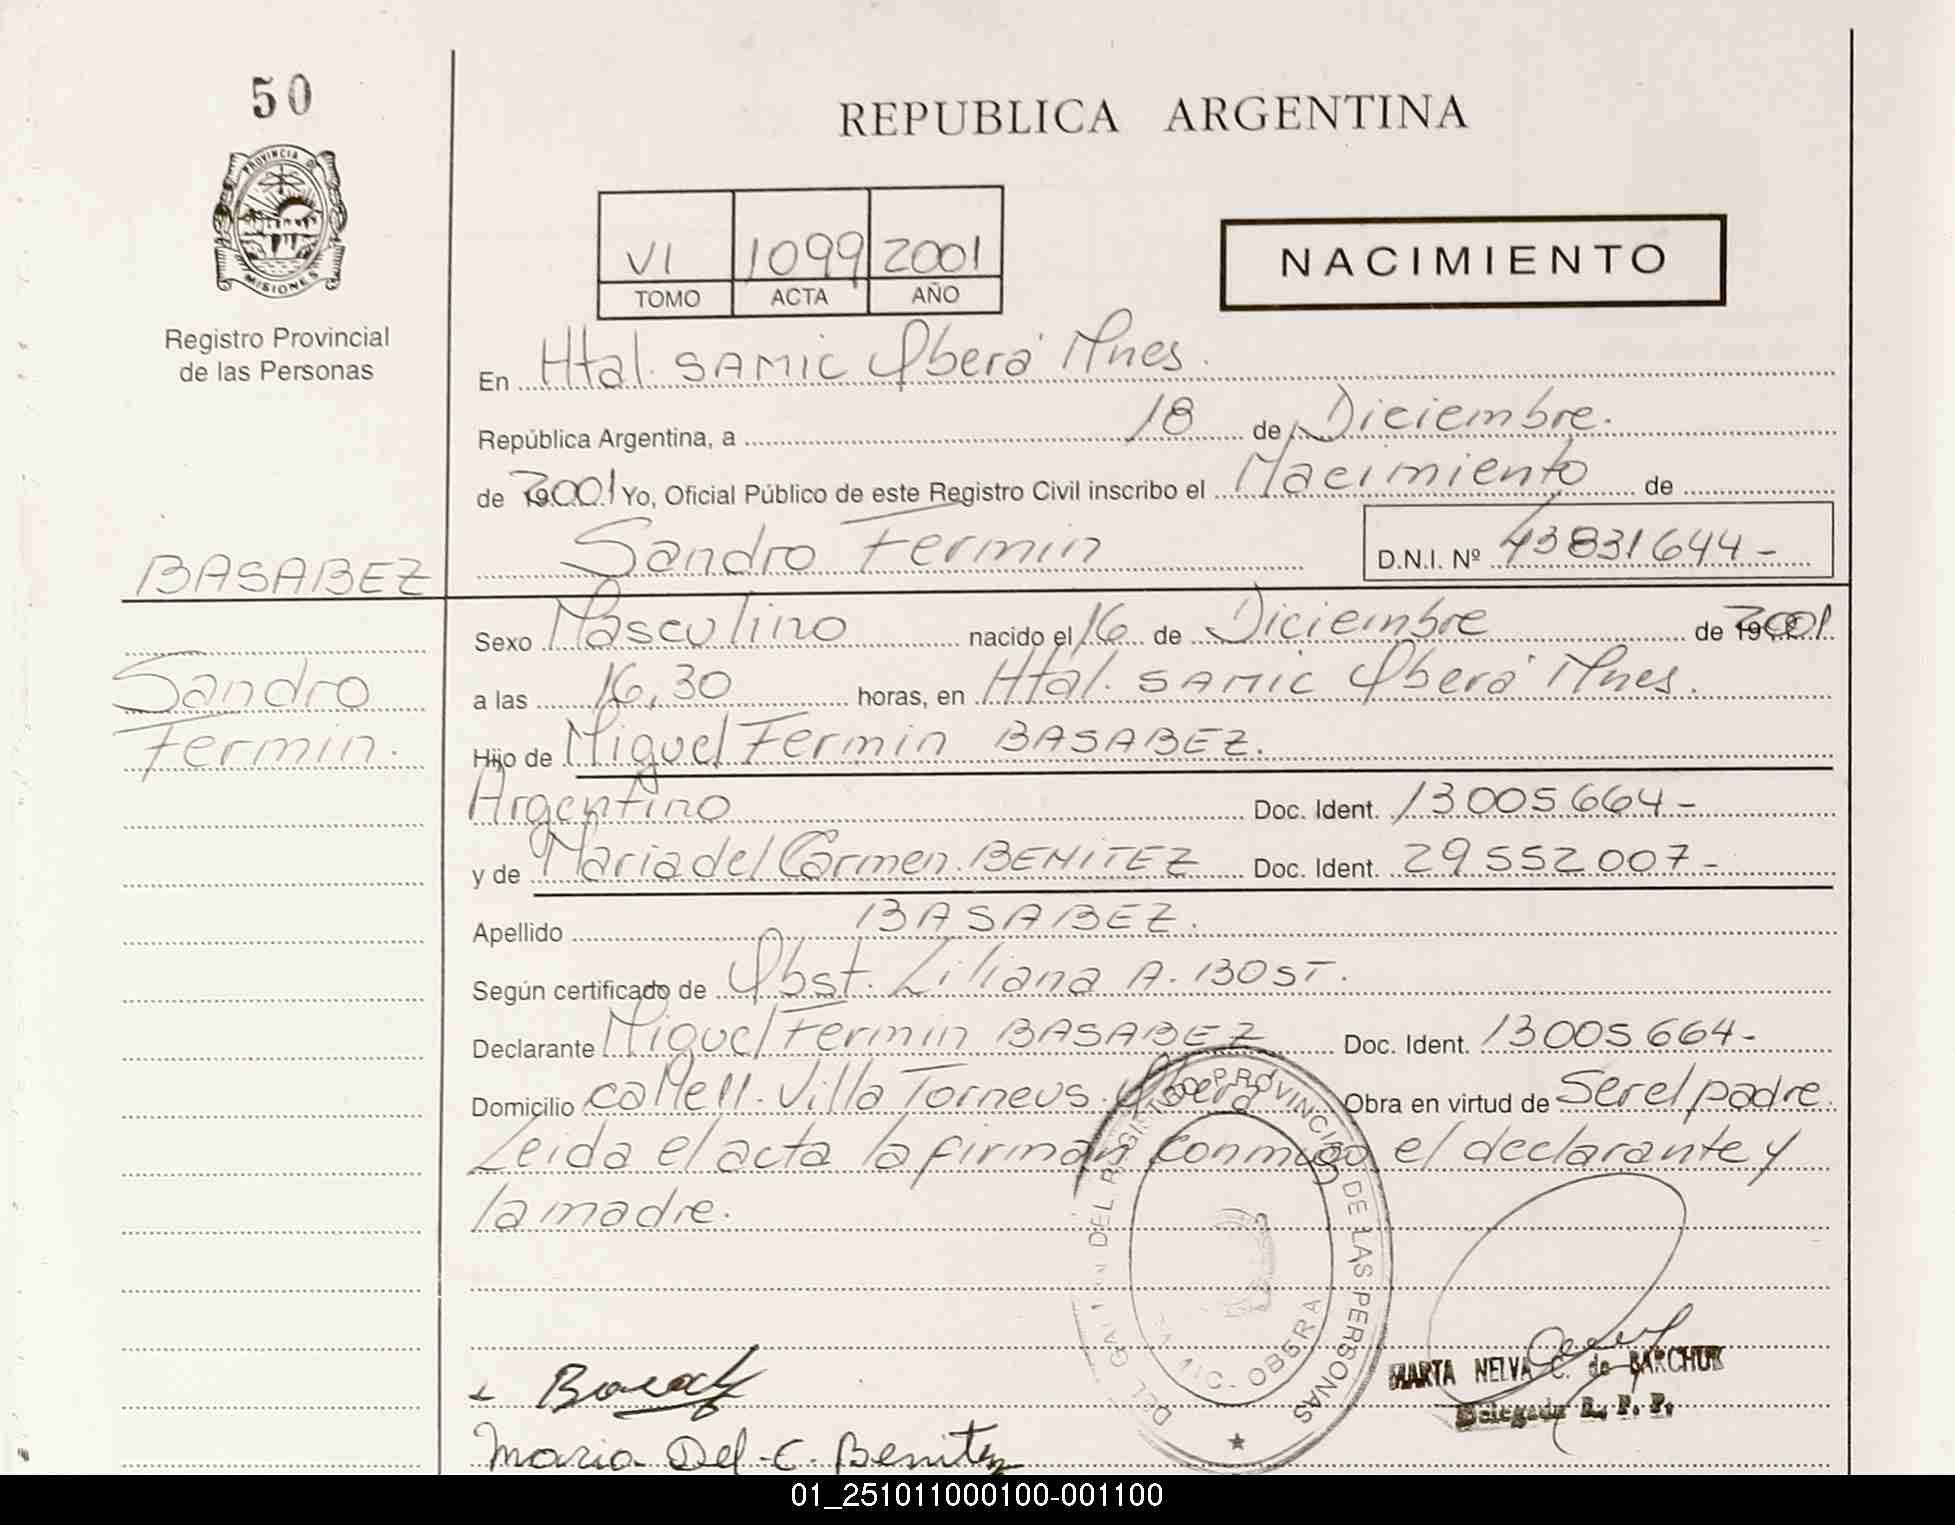 50
REPUBLICA ARGENTINA
PROVINCIA D
MISIONES
Registro Provincial
de las Personas
VI 1099 2001
TOMO ACTA AÑO
NACIMIENTO
En Htal. SAMIC Oberá Mnes.
República Argentina, a 18 de Diciembre.
de 2001 Yo, Oficial Público de este Registro Civil inscribo el Nacimiento de
Sandro Fermin D.N.I. Nº 43831644-
BASABEZ
Sandro
Fermin.
Sexo Masculino nacido el 16 de Diciembre de 2001
a las 16,30 horas, en Htal. SAMIC Oberá Mnes.
Hijo de Miguel Fermin BASABEZ.
Argentino Doc. Ident. 13005664-
y de Maria del Carmen. BENITEZ Doc. Ident. 29552007-
Apellido BASABEZ.
Según certificado de Obst. Liliana A. BOST.
Declarante Miguel Fermin BASABEZ Doc. Ident. 13005664-
Domicilio calle 11. Villa Torneus. Oberá Obra en virtud de Ser el padre.
Leida el acta la firman conmigo el declarante y
la madre.
DEL REGISTRO PROVINCIAL DE LAS PERSONAS
OBERA
MARTA NELVA C. de BARCHUK
Delegada R. P. P.
Maria Del. C. Benitez
01_251011000100-001100